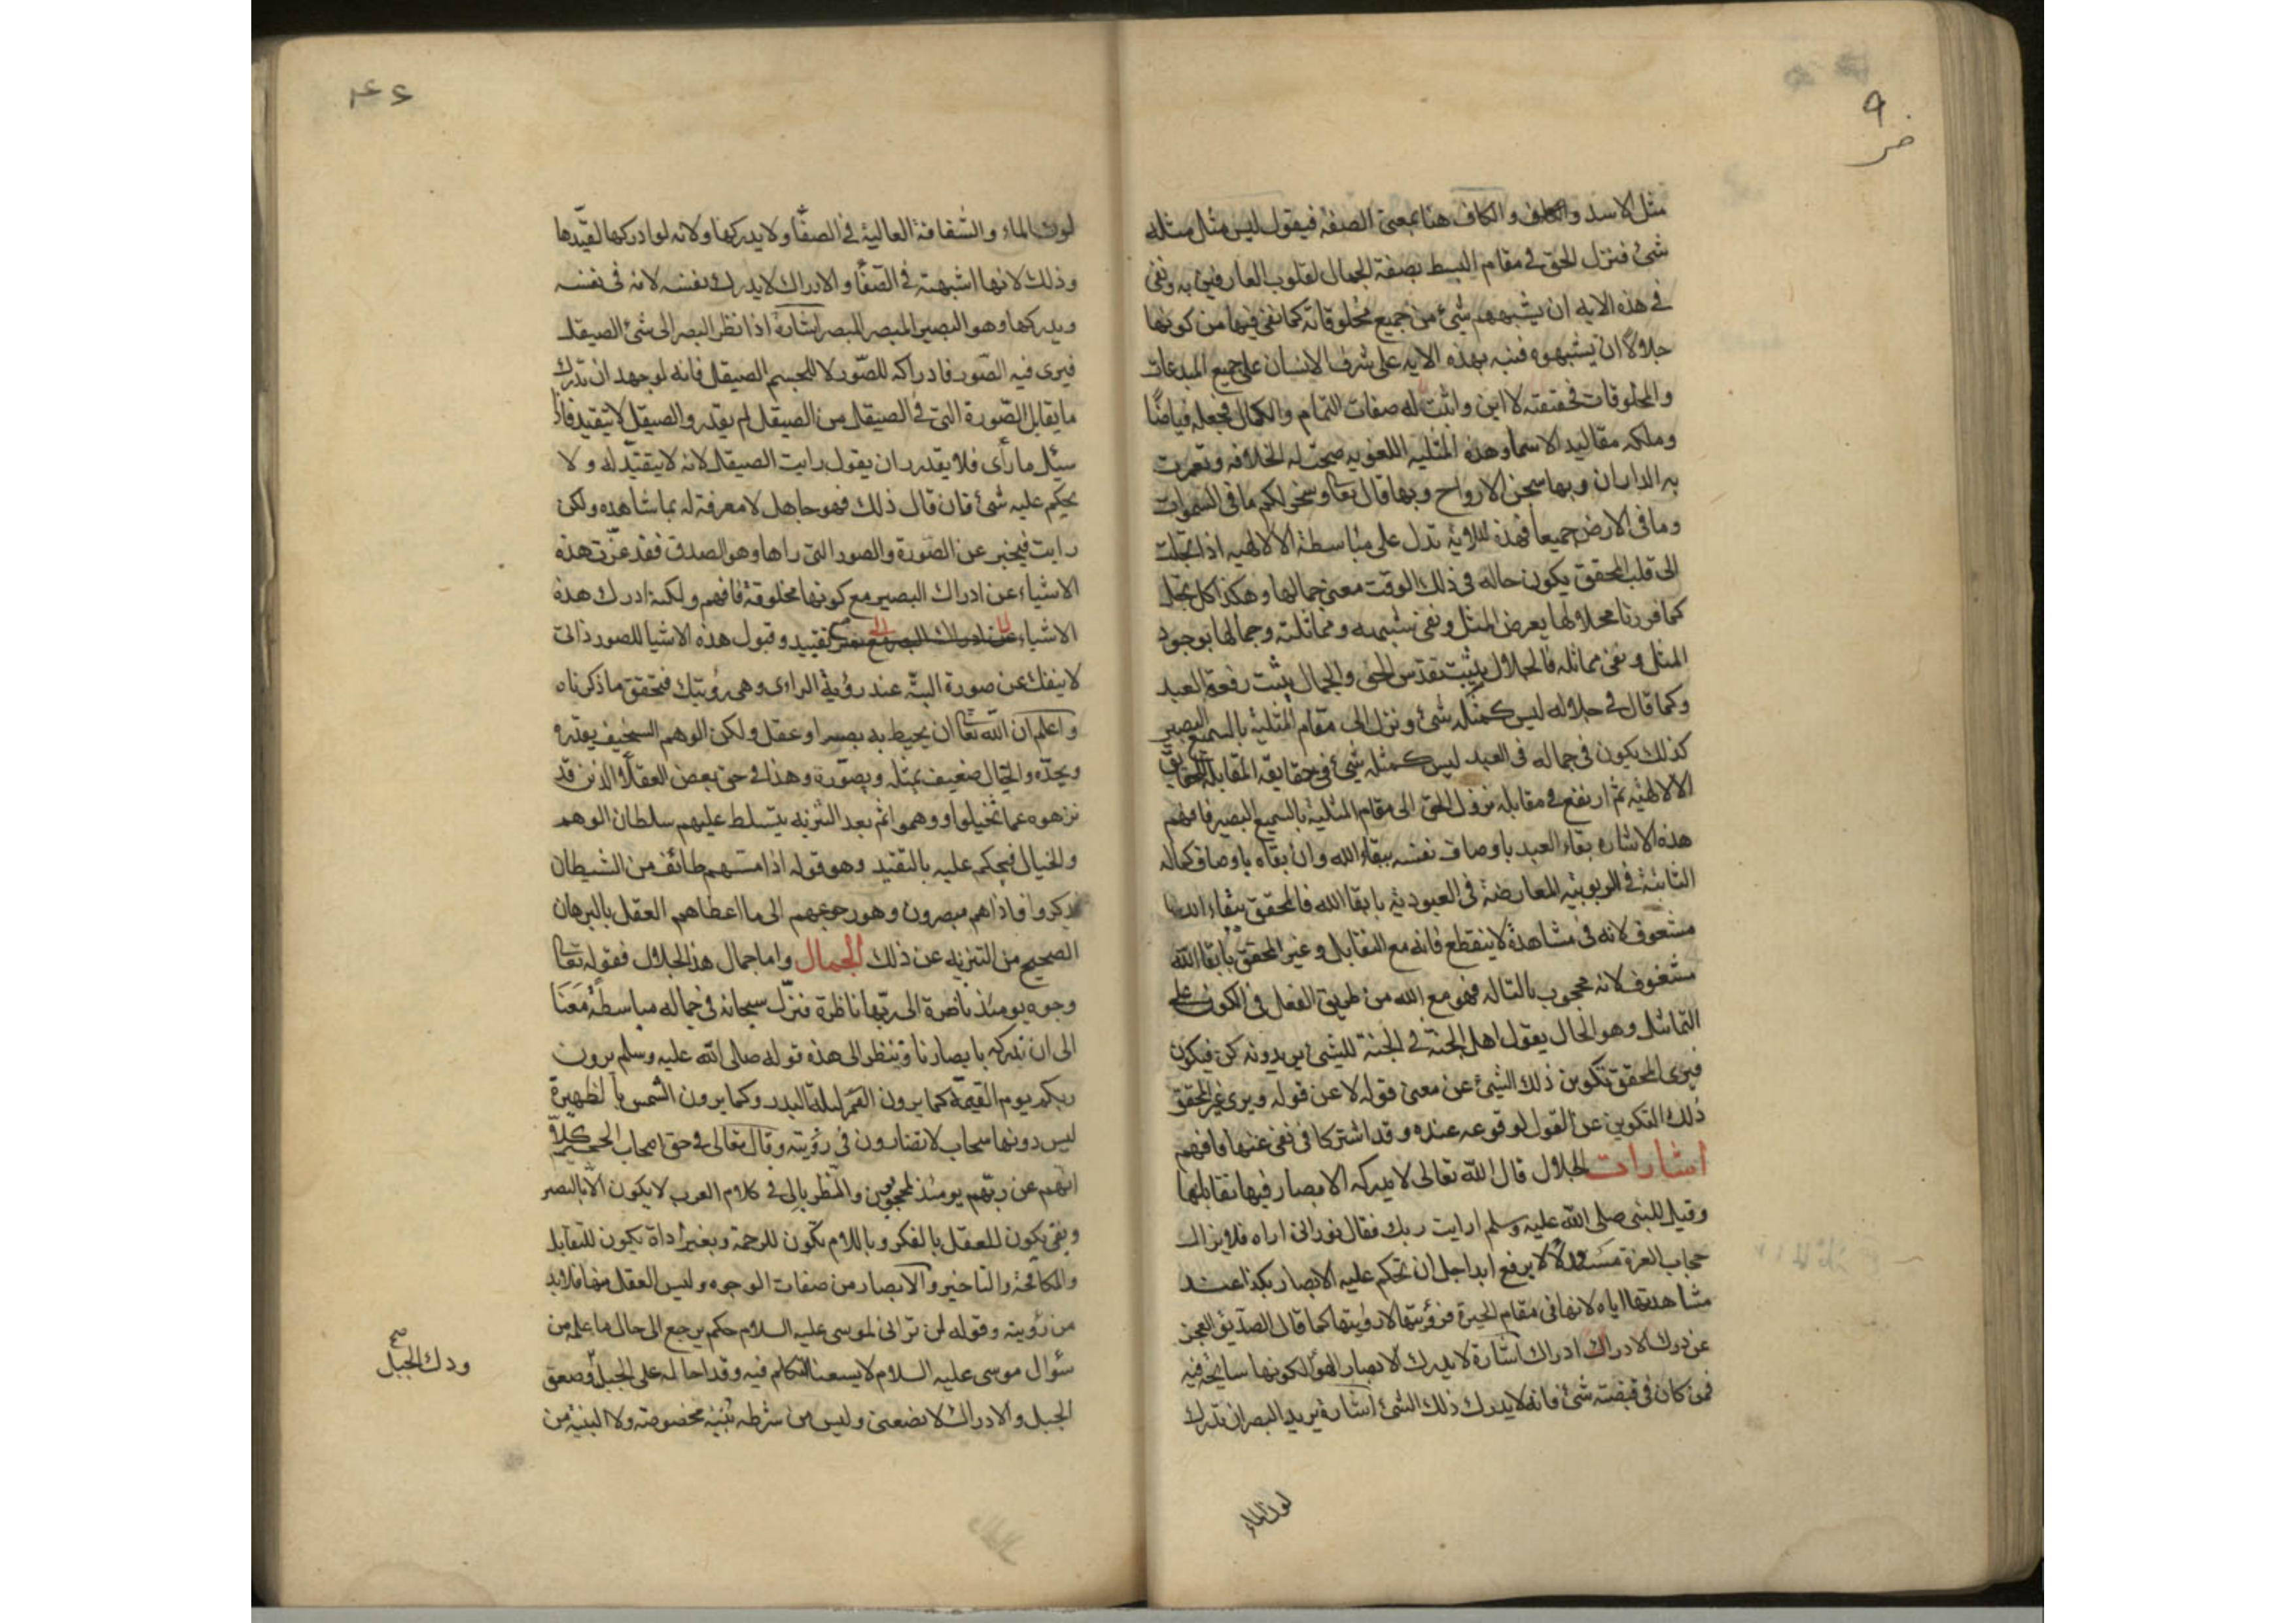 ٩
مثل الاسد والكاف هنا بمعنى الصفة فيقول ليس مثل مثله
شئ فنزل الحق في مقام البسط بصفة الجمال لقلوب العارفين به ونفى
في هذه الايه ان يشبههم شئ من جميع مخلوقاته كما نفى فيها من كونها
جلالا ان يشبهوه فنبه بهذه الايه على شرف الانسان على جميع المبدعات
والمخلوقات فحقيقته لا اين واثبت له صفات التمام والكمال فجعله فياضا
وملكه مقاليد الاسما وهذه المثليه اللغويه صحت له الخلافه وتعمرت
به الداران وبها سخر الارواح وبها قال تعا وسخر لكم ما في السموات
وما في الارض جميعا فهذه للاوية تدل على مباسطة الالالهيه اذا تجلت
الى قلب المحقق يكون حاله في ذلك الوقت معنى جمالها وهكذا كل تجل
كما قررنا محلا لها يعرض المثل ونفى شبيهه ومماثلته وجمالها بوجود
المثل ونفى مماثله فالجلال يثبت تقدس الحق والجمال يثبت رفعة العبد
وكما قال في جلاله ليس كمثله شئ ونزل الى مقام المثلية بالسميع البصير
كذلك يكون في جماله في العبد ليس كمثله شئ في حقايقه المقابلة للحقايق
الالالهيه ثم ارتفع في مقابله نزول الحق الى مقام المثلية بالسميع البصير فافهم
هذه الاشاره بقاء العبد باوصاف نفسه ببقاء الله وان بقاه باوصاف كماله
الثابتة في الربوبيه المعارضة في العبوديه بابقا الله فالمحقق ببقاء الله
مشعوف لانه في مشاهدة لا ينقطع فانه مع التقابل وغير المحقق بابقا الله
مشغوف لانه محجوب بالتاله فهو مع الله من طريق الفعل في الكون على
التماثل وهو الحال يقول اهل الجنة في الجنة للشئ يريدونه كن فيكون
فيرى المحقق تكوين ذلك الشئ عن معنى قوله لا عن قوله ويرى غير المحقق
ذلك التكوين عن القول لوقوعه عنده وقد اشتركا في نفى عنها فافهم
اشارات الجلال قال الله تعالى لا يدركه الابصار فيها تقابلها
وقيل للنبى صلى الله عليه وسلم ارايت ربك فقال نورانى اراه فلا يزال
حجاب العزة مسدولا لا يرفع ابدا جل ان تحكم عليه الابصار بكذا عند
مشاهدتها اياه لانها في مقام الحيرة فرؤيتها لا رؤيتها كما قال الصديق العجز
عن درك الادراك ادراك اشارة لا يدرك الابصار الهوآ لكونها سابحة فيه
فمن كان في قبضته شئ فانه لا يدرك ذلك الشئ اشارة يريد البصر ان تدرك
لون الماء
لون الماء والشفافة العالية في الصفآ ولا يدركها ولانه لو ادركها لقيدها
وذلك لانها اشبهته في الصفآ والادراك لا يدرك نفسه لانه في نفسه
ويدركها وهو البصير المبصر للبصر اشارة اذا نظر البصر الى شئ الصيقل
فيرى فيه الصور فادراكه للصور لا للجسم الصيقل فانه لو جهد ان تدرك
ما يقابل الصورة التى في الصيقل من الصيقل لم يقدر والصيقل لا يتقيد فاذا
سئل ما رأى فلا يقدر ان يقول رايت الصيقل لانه لا يتقيد له ولا
يحكم عليه شئ فان قال ذلك فهو جاهل لا معرفة له بما شاهده ولكن
رايت فيخبر عن الصورة والصور التى راها وهو الصدق فقد عزت هذه
الاشياء عن ادراك البصير مع كونها مخلوقة فافهم ولكنه ادرك هذه
الاشياء عن ادراك البصر مع تقييد وقبول هذه الاشيا للصور ذاتى
لا ينفك عن صورة البتة عند رؤية الراءى وهى رؤيتك فتحقق ما ذكرناه
واعلم ان الله تعا ان يحيط به بصر او عقل ولكن الوهم السخيف يقدره
ويحده والخيال ضعيف يمثله ويصوره وهذا في حق بعض العقلآ الذين قد
نزهوه عما تخيلوا ووهموا ثم بعد التنزيه يتسلط عليهم سلطان الوهم
والخيال فيحكم عليه بالتقيد وهو قوله اذا مسهم طائف من الشيطان
تذكروا فاذا هم مبصرون وهو رجوعهم الى ما اعطاهم العقل بالبرهان
الصحيح من التنزيه عن ذلك الجمال واما جمال هذا الجلال فقوله تعا
وجوه يومئذ ناضرة الى ربها ناظرة فنزل سبحانه في جماله مباسطة معنا
الى ان ندركه بابصارنا وتنظر الى هذه قوله صلى الله عليه وسلم ترون
ربكم يوم القيمة كما يرون القمر ليلة البدر وكما يرون الشمس بالظهيرة
ليس دونها سحاب لا تضارون في رؤيته وقال تعالى في حق اصحاب الجحيم كلا
انهم عن ربهم يومئذ لمحجوبين والنظر بالى في كلام العرب لا يكون الا بالبصر
وبفى يكون للعقل بالفكر وباللام تكون للرحمة وبغير اداة تكون للتقابل
والمكافحة والتاخير والابصار من صفات الوجوه وليس العقل منها فلا بد
من رؤيته وقوله لن ترانى لموسى عليه السلام حكم يرجع الى حال ما علم من
سؤال موسى عليه السلام لا يسعنا التكلم فيه وقد احاله على الجبل وصعق
الجبل والادراك لا يضعنى وليس من شرطه بنية مخصوصة ولا البنية من
ودك الجبل
صح